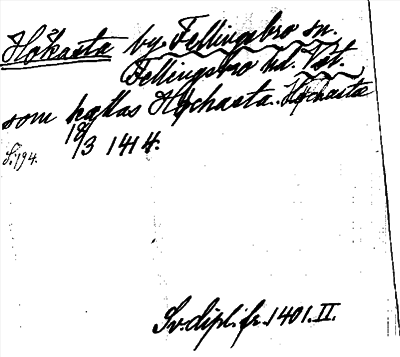 Hökasta by, Fellingsbro sn.
Fellingsbro hd. Vst.
som kallas Høchasta. Høchasta
18/3 1414.
S. 194.
Sv. dipl. fr. 1401. II.